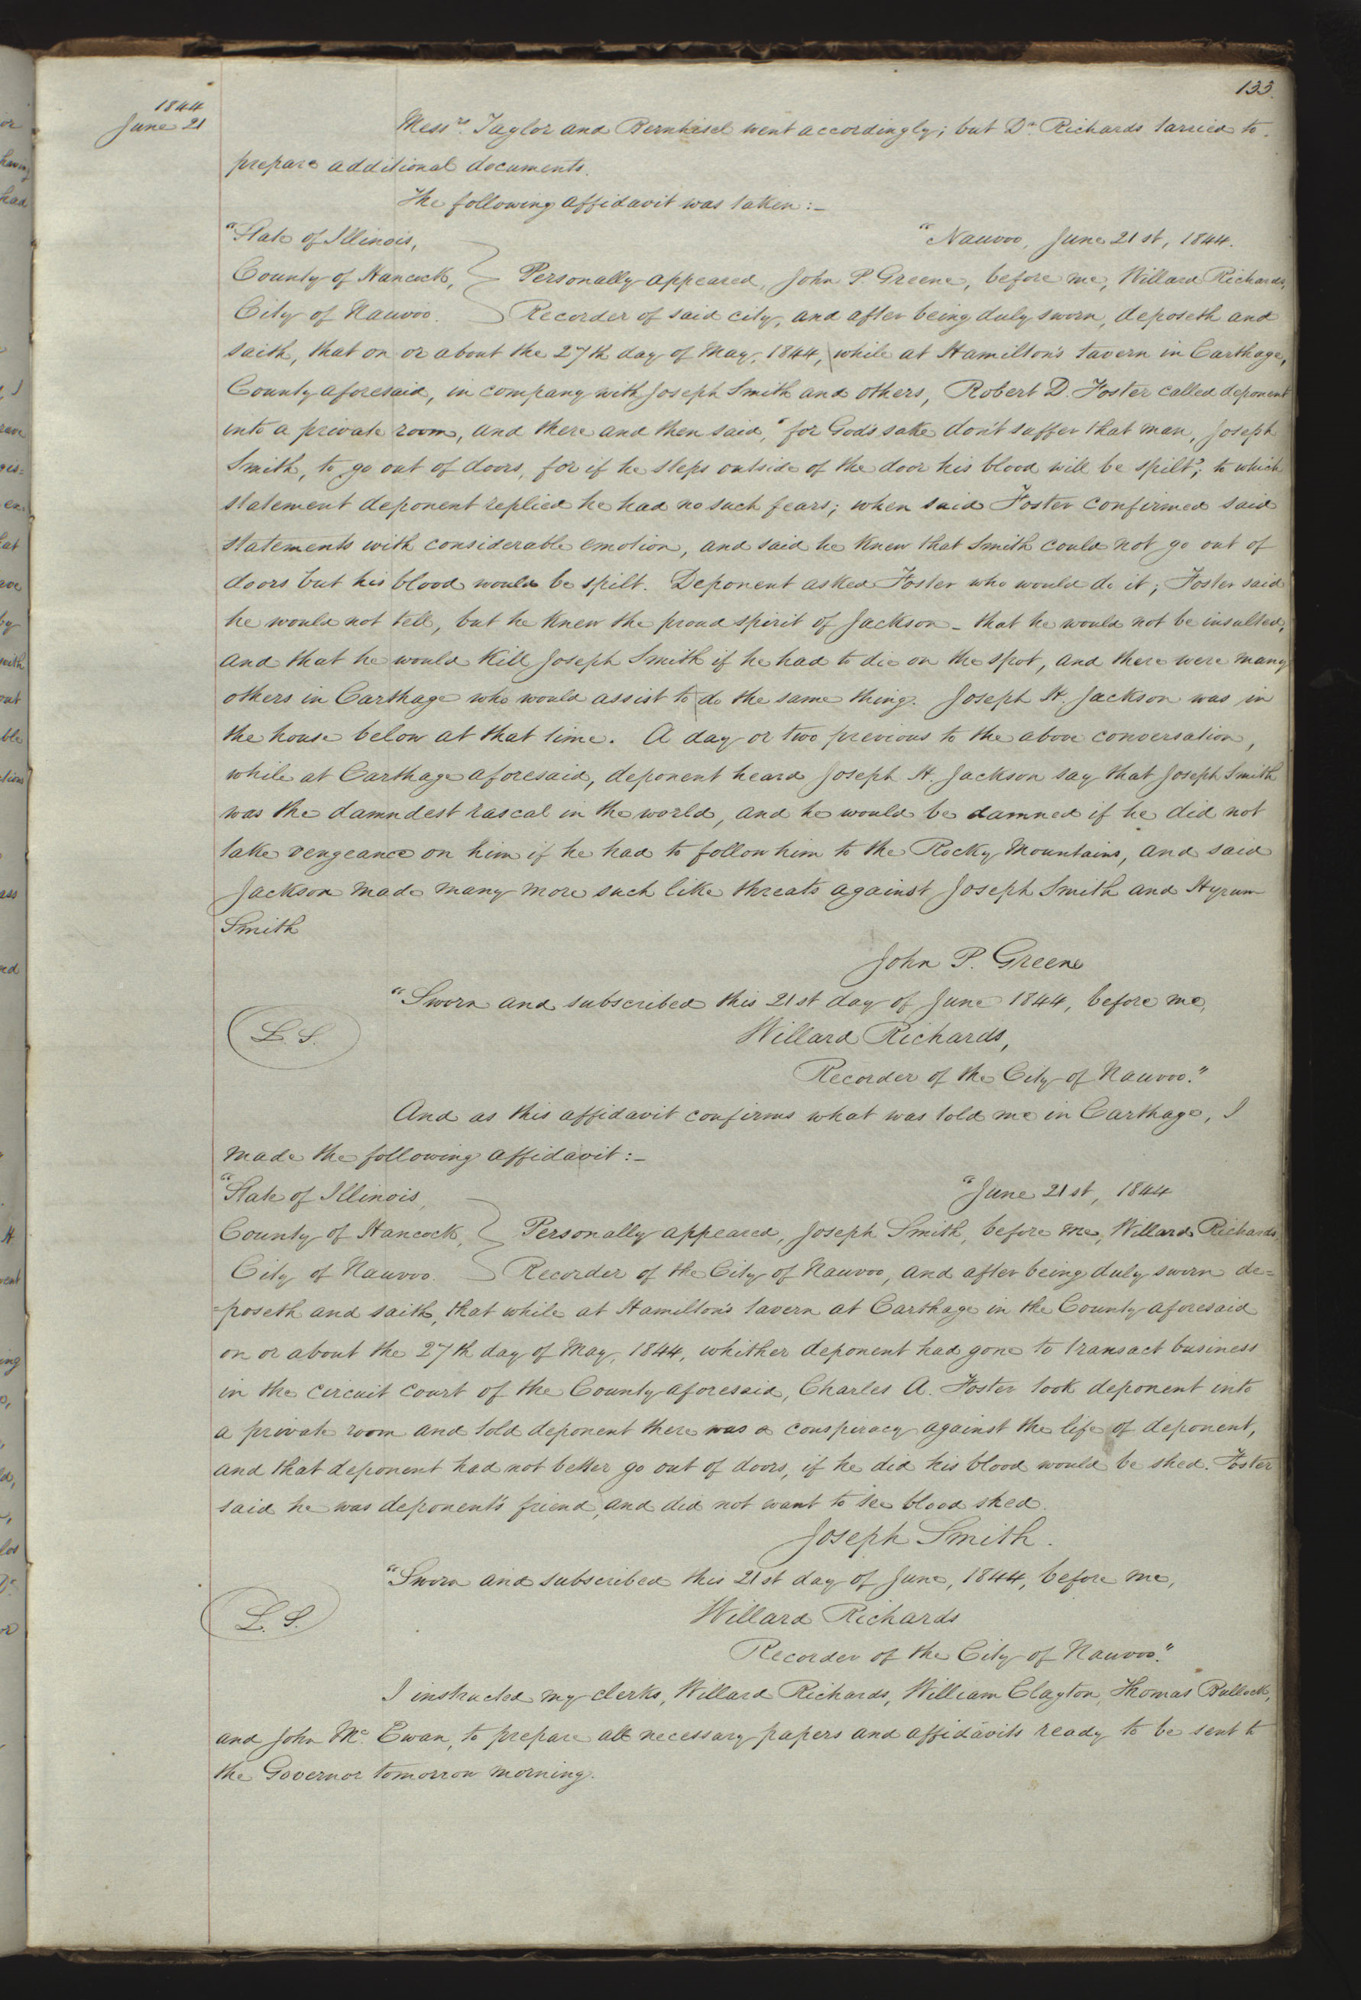 133.
1844
June 21
Mess.rs Taylor and Bernhisel went accordingly; but Dr. Richards tarried to
prepare additional documents.
The following affidavit was taken:—
"State of Illinois, "Nauvoo, June 21st, 1844.
County of Hancock, Personally appeared, John P. Greene, before me, Willard Richards,
City of Nauvoo. Recorder of said city, and after being duly sworn, deposeth and
saith, that on or about the 27th day of May, 1844, while at Hamilton's tavern in Carthage,
County aforesaid, in company with Joseph Smith and others, Robert D. Foster called deponent
into a private room, and there and then said, "for God's sake don't suffer that man, Joseph
Smith, to go out of doors, for if he steps outside of the door his blood will be spilt"; to which
statement deponent replied he had no such fears; when said Foster confirmed said
statements with considerable emotion, and said he knew that Smith could not go out of
doors but his blood would be spilt. Deponent asked Foster who would do it; Foster said
he would not tell, but he knew the proud spirit of Jackson — that he would not be insulted,
and that he would kill Joseph Smith if he had to die on the spot, and there were many
others in Carthage who would assist to do the same thing. Joseph H. Jackson was in
the house below at that time. A day or two previous to the above conversation,
while at Carthage aforesaid, deponent heard Joseph H. Jackson say that Joseph Smith
was the damndest rascal in the world, and he would be damned if he did not
take vengeance on him if he had to follow him to the Rocky Mountains, and said
Jackson made many more such like threats against Joseph Smith and Hyrum
Smith
John P. Greene
"Sworn and subscribed this 21st day of June 1844, before me,
L. S. Willard Richards,
Recorder of the City of Nauvoo."
And as this affidavit confirms what was told me in Carthage, I
made the following affidavit:—
"State of Illinois, "June 21st, 1844
County of Hancock, Personally appeared, Joseph Smith, before me, Willard Richards,
City of Nauvoo. Recorder of the City of Nauvoo, and after being duly sworn de=
=poseth and saith, that while at Hamilton's tavern at Carthage in the County aforesaid
on or about the 27th day of May, 1844, whither deponent had gone to transact business
in the circuit court of the County aforesaid, Charles A. Foster took deponent into
a private room and told deponent there was a conspiracy against the life of deponent,
and that deponent had not better go out of doors, if he did his blood would be shed. Foster
said he was deponent's friend, and did not want to see blood shed.
Joseph Smith.
"Sworn and subscribed this 21st day of June, 1844, before me,
L. S. Willard Richards
Recorder of the City of Nauvoo."
I instructed my clerks, Willard Richards, William Clayton, Thomas Bullock,
and John Mc. Ewan, to prepare all necessary papers and affidavits ready to be sent to
the Governor tomorrow morning.